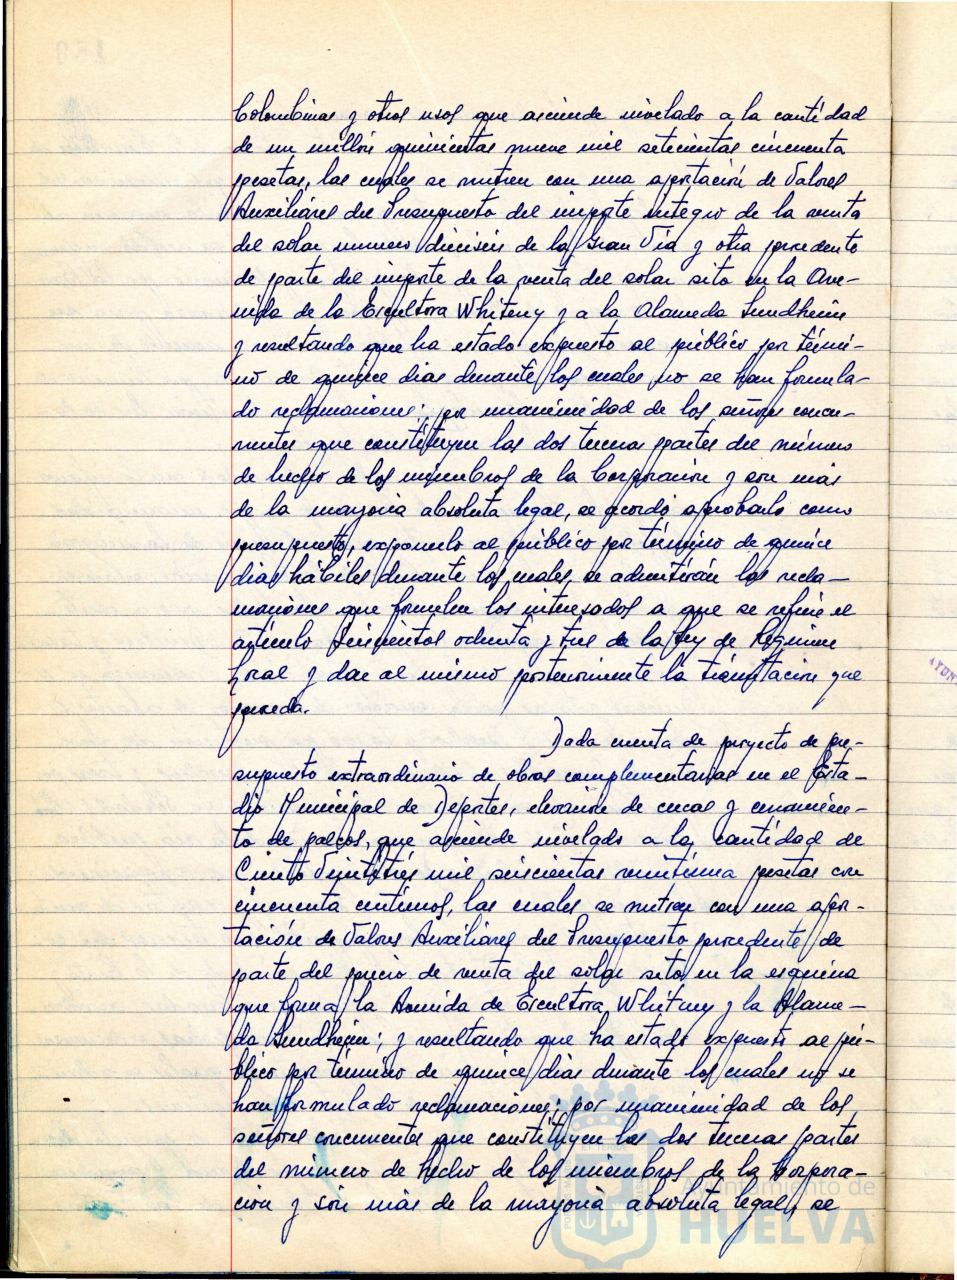 Colombinas y otros usos que asciende nivelado a la cantidad
de un millón quinientas nueve mil setecientas cincuenta
pesetas, las cuales se nutren con una aportación de Valores
Auxiliáres del Presupuesto del importe integro de la venta
del solar numero dieciseis de la Gran Vía y otra procedente
de parte del importe de la venta del solar sito en la Ave-
nida de la Escultora Whiteny y a la Alameda Sundheim
y resultando que ha estado expuesto al público por térmi-
no de quince dias durante los cuales no se han formula-
do reclamaciones; por unanimidad de los señores concu-
rrentes que constituyen las dos terceras partes del número
de hecho de los miembros de la Corporación y son más
de la mayoria absoluta legal, se acordó aprobarlo como
presupuesto, exponerlo al público por término de quince
dias hábiles durante los cuales, se admitirán las recla-
maciones que formulen los interesados a que se refiere el
artículo seiscientos ochenta y tres de la Ley de Regimen
Local y dar al mismo posteriormente la tramitación que
proceda.
Dada cuenta de proyecto de pre-
supuesto extraordinario de obras complementarias en el Esta-
dio Municipal de Deportes, elevación de cercas y cerramien-
to de palcos, que asciende nivelado a la cantidad de
Ciento Veintitrés mil seiscientas veintiuna pesetas con
cincuenta centimos, las cuales se nutren con una apor-
tación de Valores Auxiliáres del Presupuesto procedente de
parte del precio de venta del solar sito en la esquina
que forma la Avenida de Escultora Whitney y la Alame-
da Sundheim; y resultando que ha estado expuesto al pú-
blico por término de quince dias durante los cuales no se
han formulado reclamaciones; por unanimidad de los
señores concurrentes que constituyen las dos terceras partes
del número de hecho de los miembros de la Corpora-
ción y són más de la mayoria absoluta legal, se
Ayuntamiento de
HUELVA